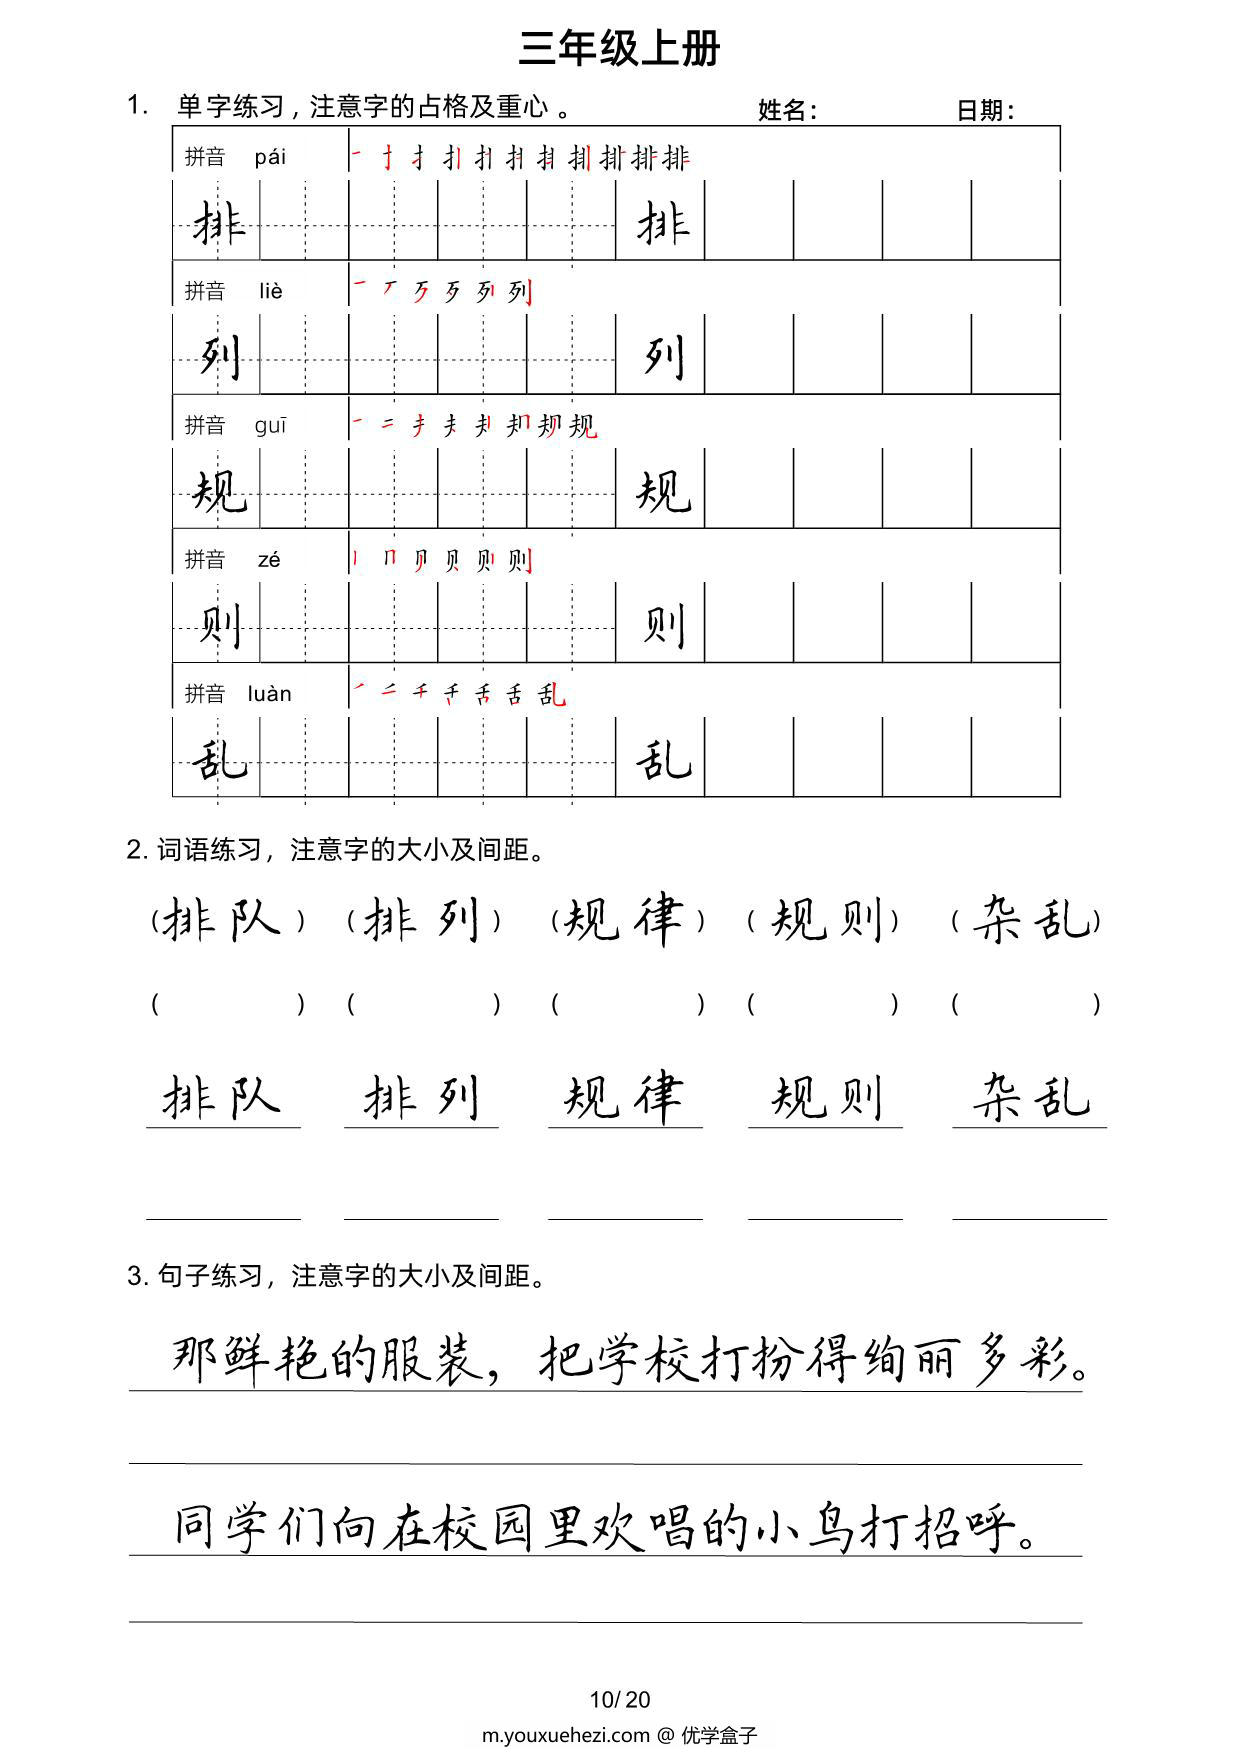 三年级上册
1. 单字练习，注意字的占格及重心。 姓名： 日期：
拼音 pái
排 排
拼音 liè
列 列
拼音 guī
规 规
拼音 zé
则 则
拼音 luàn
乱 乱
2. 词语练习，注意字的大小及间距。
（排队）（排列）（规律）（规则）（杂乱）
（ ）（ ）（ ）（ ）（ ）
排队 排列 规律 规则 杂乱
3. 句子练习，注意字的大小及间距。
那鲜艳的服装，把学校打扮得绚丽多彩。
同学们向在校园里欢唱的小鸟打招呼。
10/20
m.youxuehezi.com @ 优学盒子